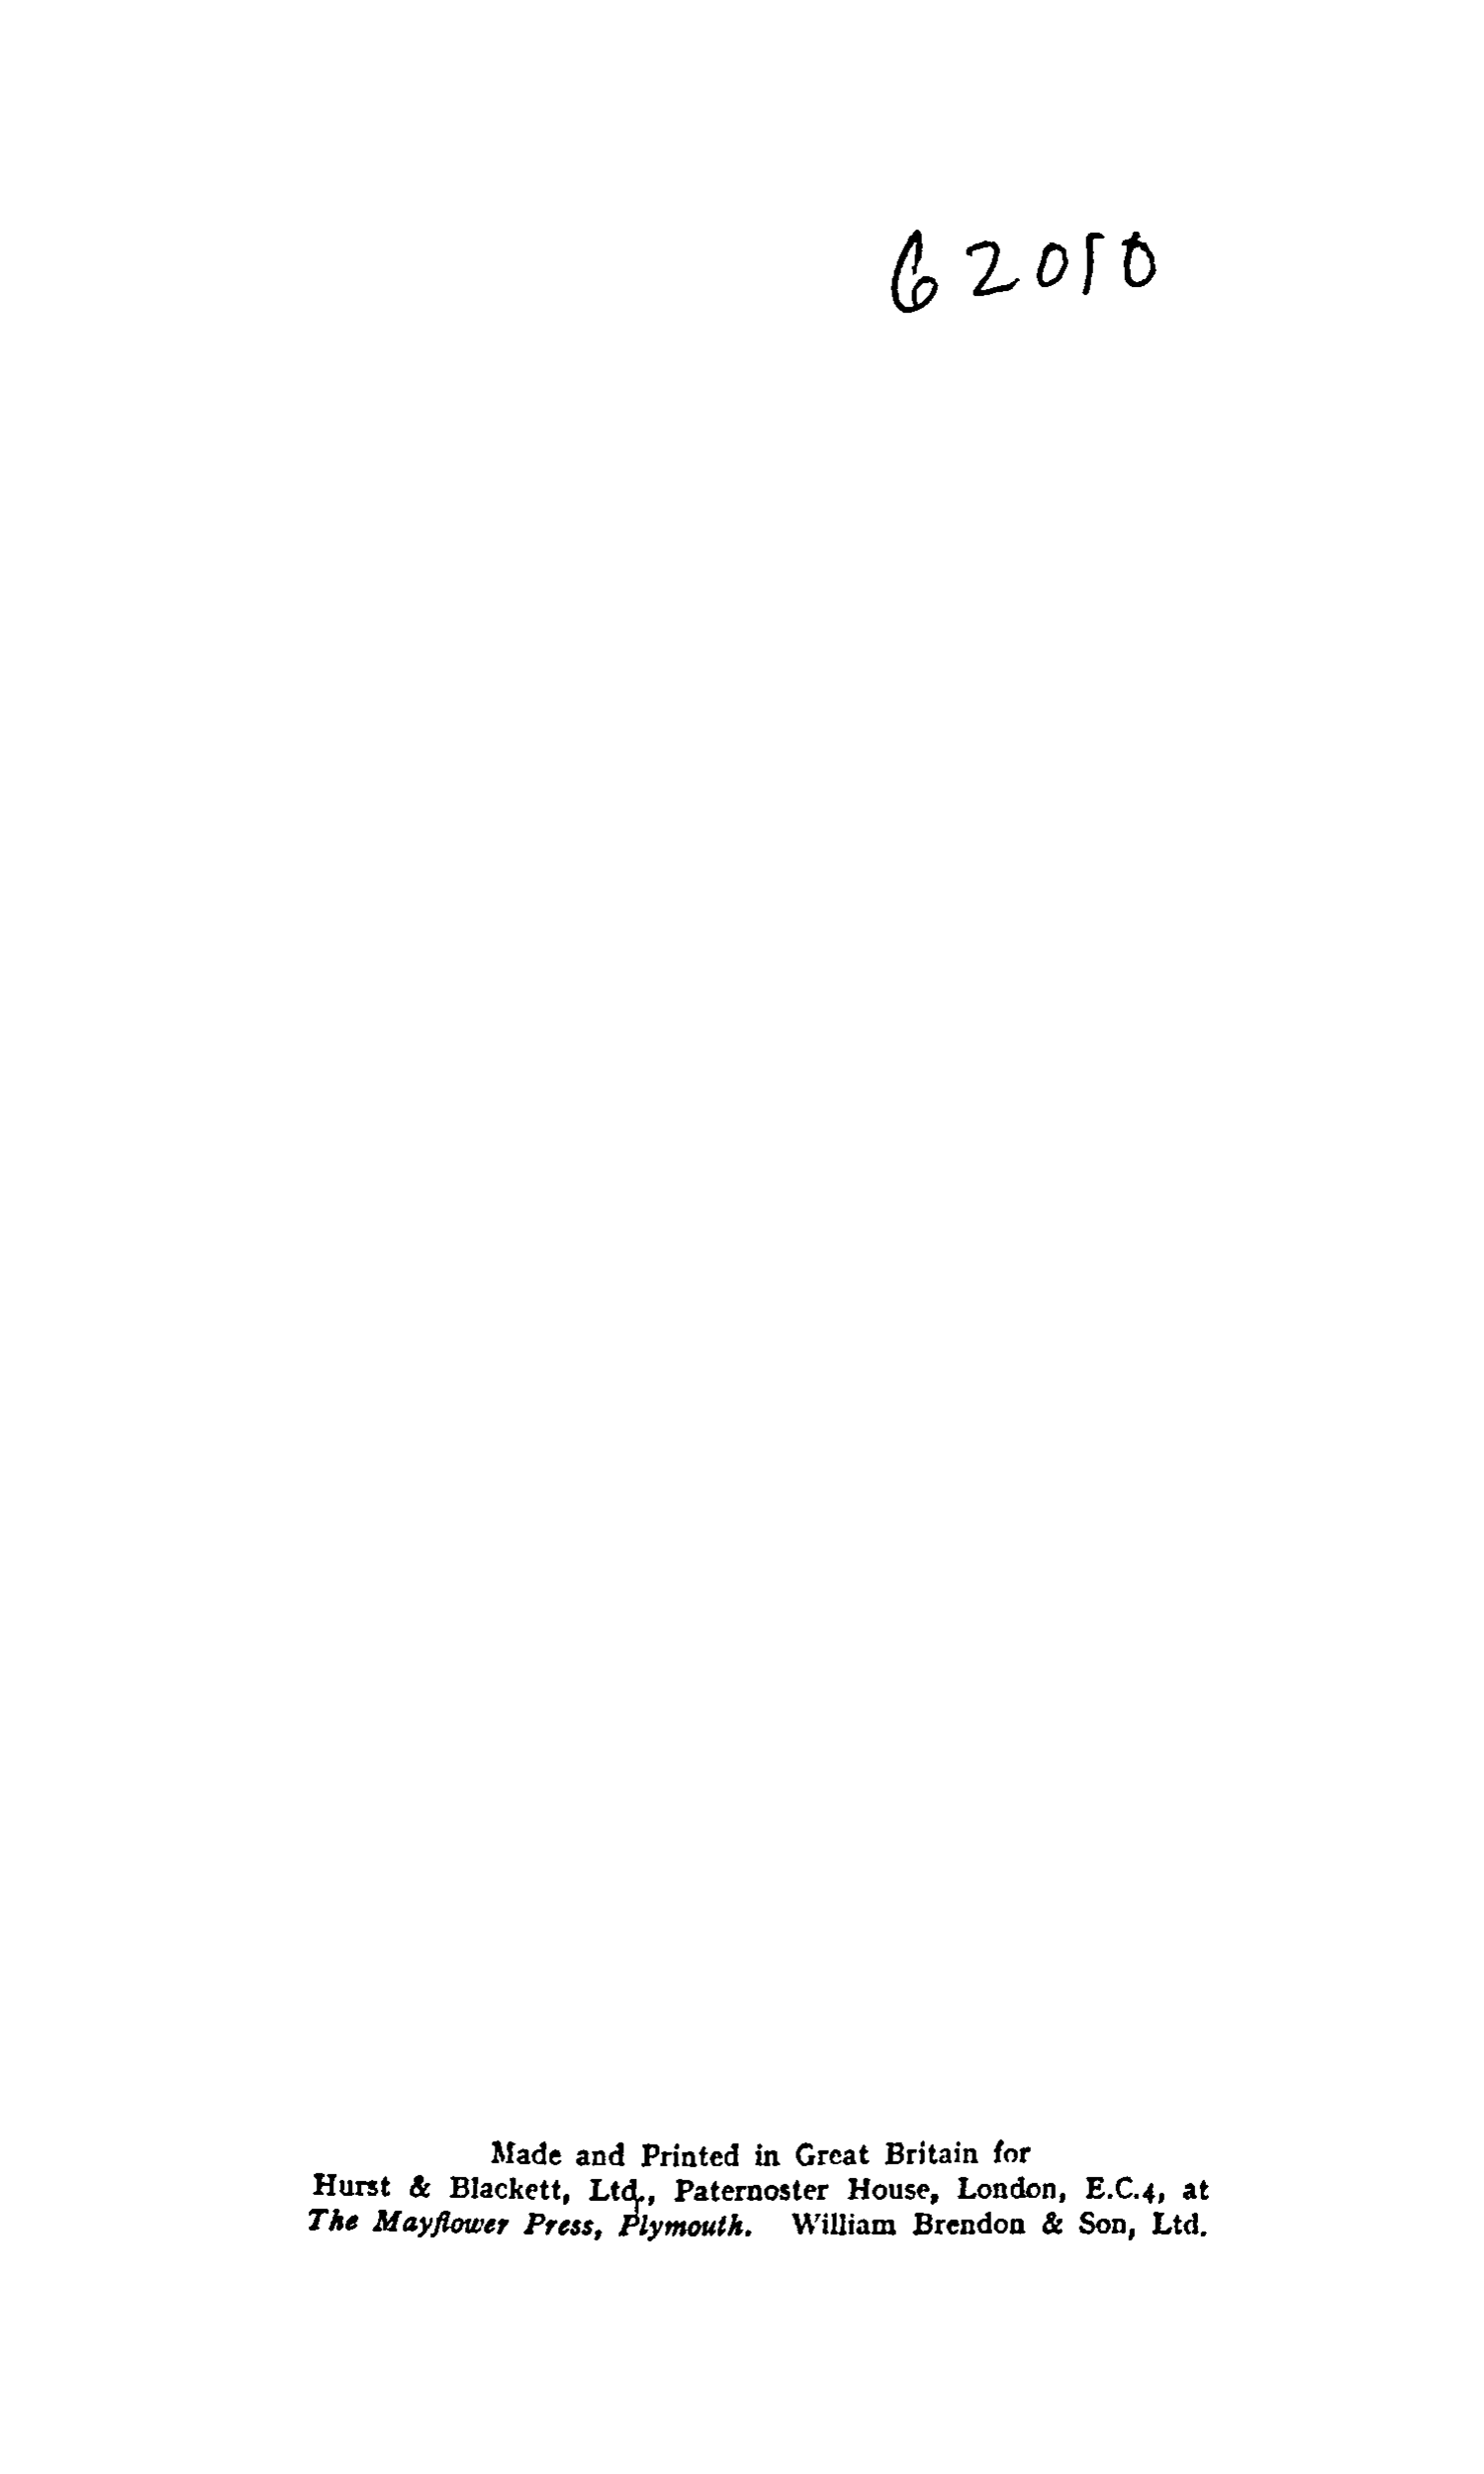 62010
Made and Printed in Great Britain for
Hurst & Blackett, Ltd., Paternoster House, London, E.C.4, at
The Mayflower Press, Plymouth. William Brendon & Son, Ltd.